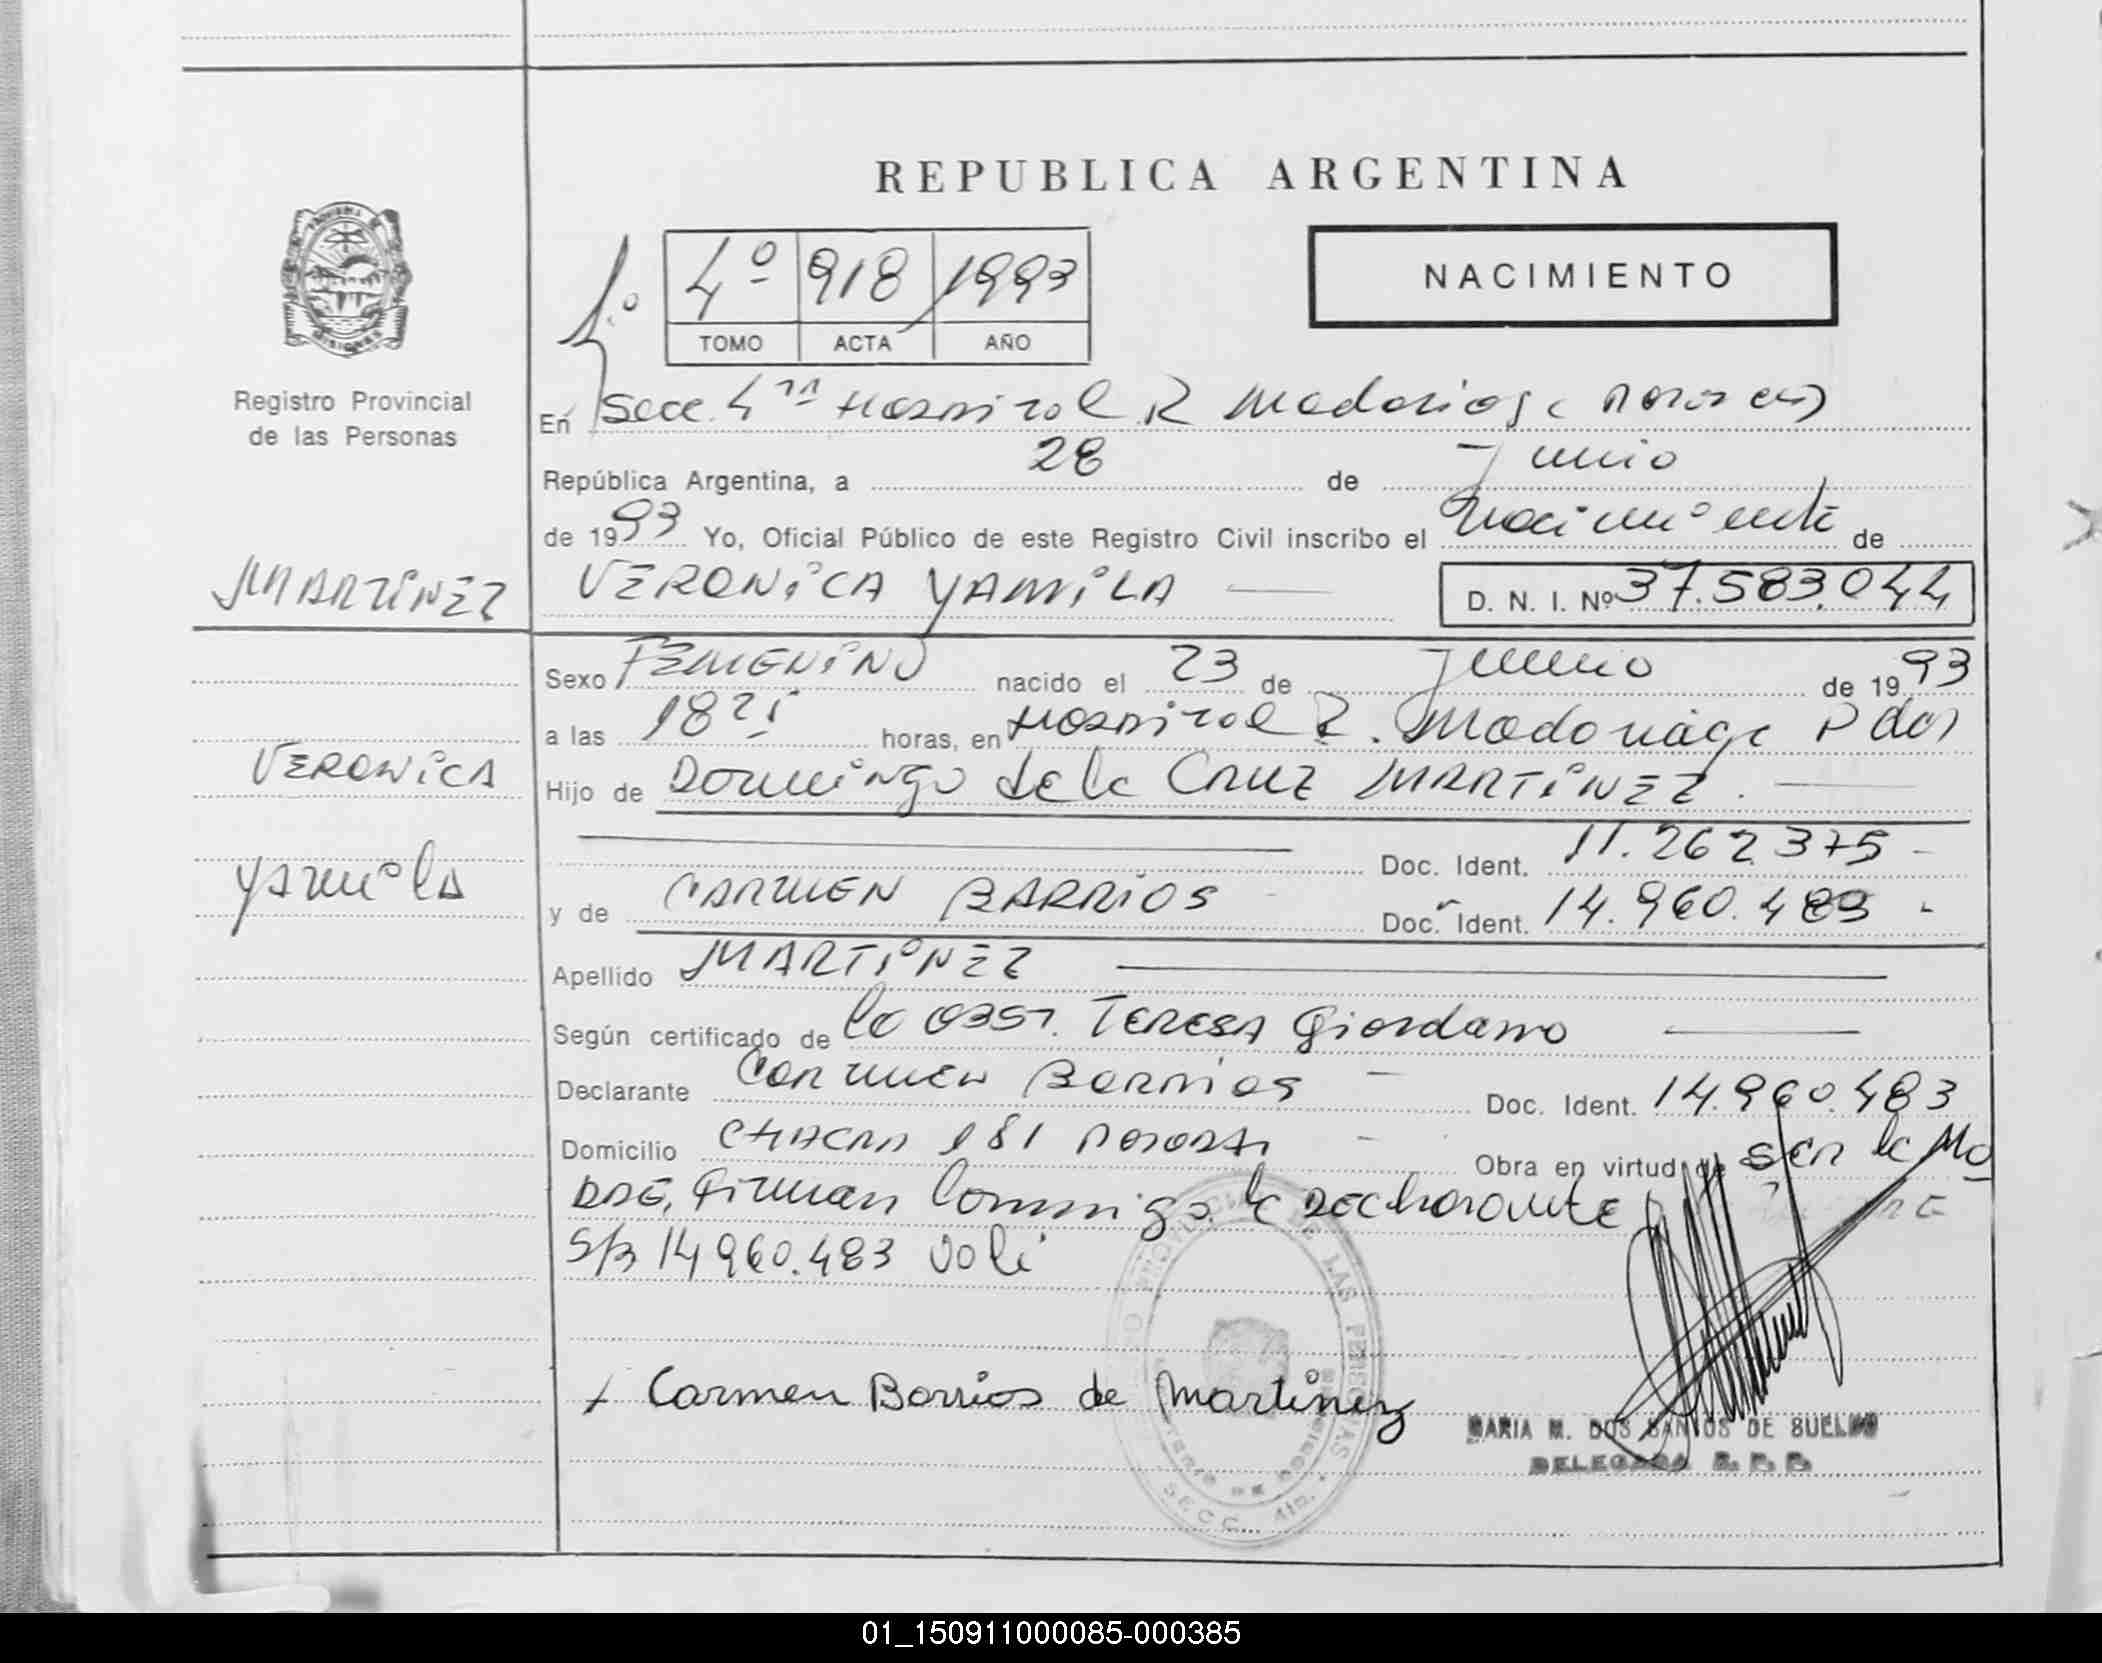 REPUBLICA ARGENTINA
NACIMIENTO
1º
4º 918 1993
TOMO ACTA AÑO
PROVINCIA DE MISIONES
Registro Provincial
de las Personas
En Secc. 4ta Hospital R Madariaga Posadas
República Argentina, a 28 de Junio
de 1993 Yo, Oficial Público de este Registro Civil inscribo el Nacimiento de
MARTINEZ
VERONICA YAMILA
D. N. I. Nº 37.583.044
Sexo FEMENINO nacido el 23 de Junio de 1993
a las 18 horas, en Hospital R. Madariaga Pdas
VERONICA
Hijo de Domingo de la Cruz MARTINEZ.
Doc. Ident. 11.262.375
YAMILA
y de CARMEN BARRIOS Doc. Ident. 14.960.483
Apellido MARTINEZ
Según certificado de la OBST. TERESA Giordano
Declarante Carmen Barrios Doc. Ident. 14.960.483
Domicilio CHACRA 181 POSADAS Obra en virtud de SER la MA
DRE, Firman Conmigo la Declarante
S/B 14960.483 Vale
x Carmen Barrios de Martinez
MARIA M. DOS SANTOS DE
DELEGADA R. P. P.
PROVINCIAL DE LAS PERSONAS
SECC. 4ta.
01_150911000085-000385